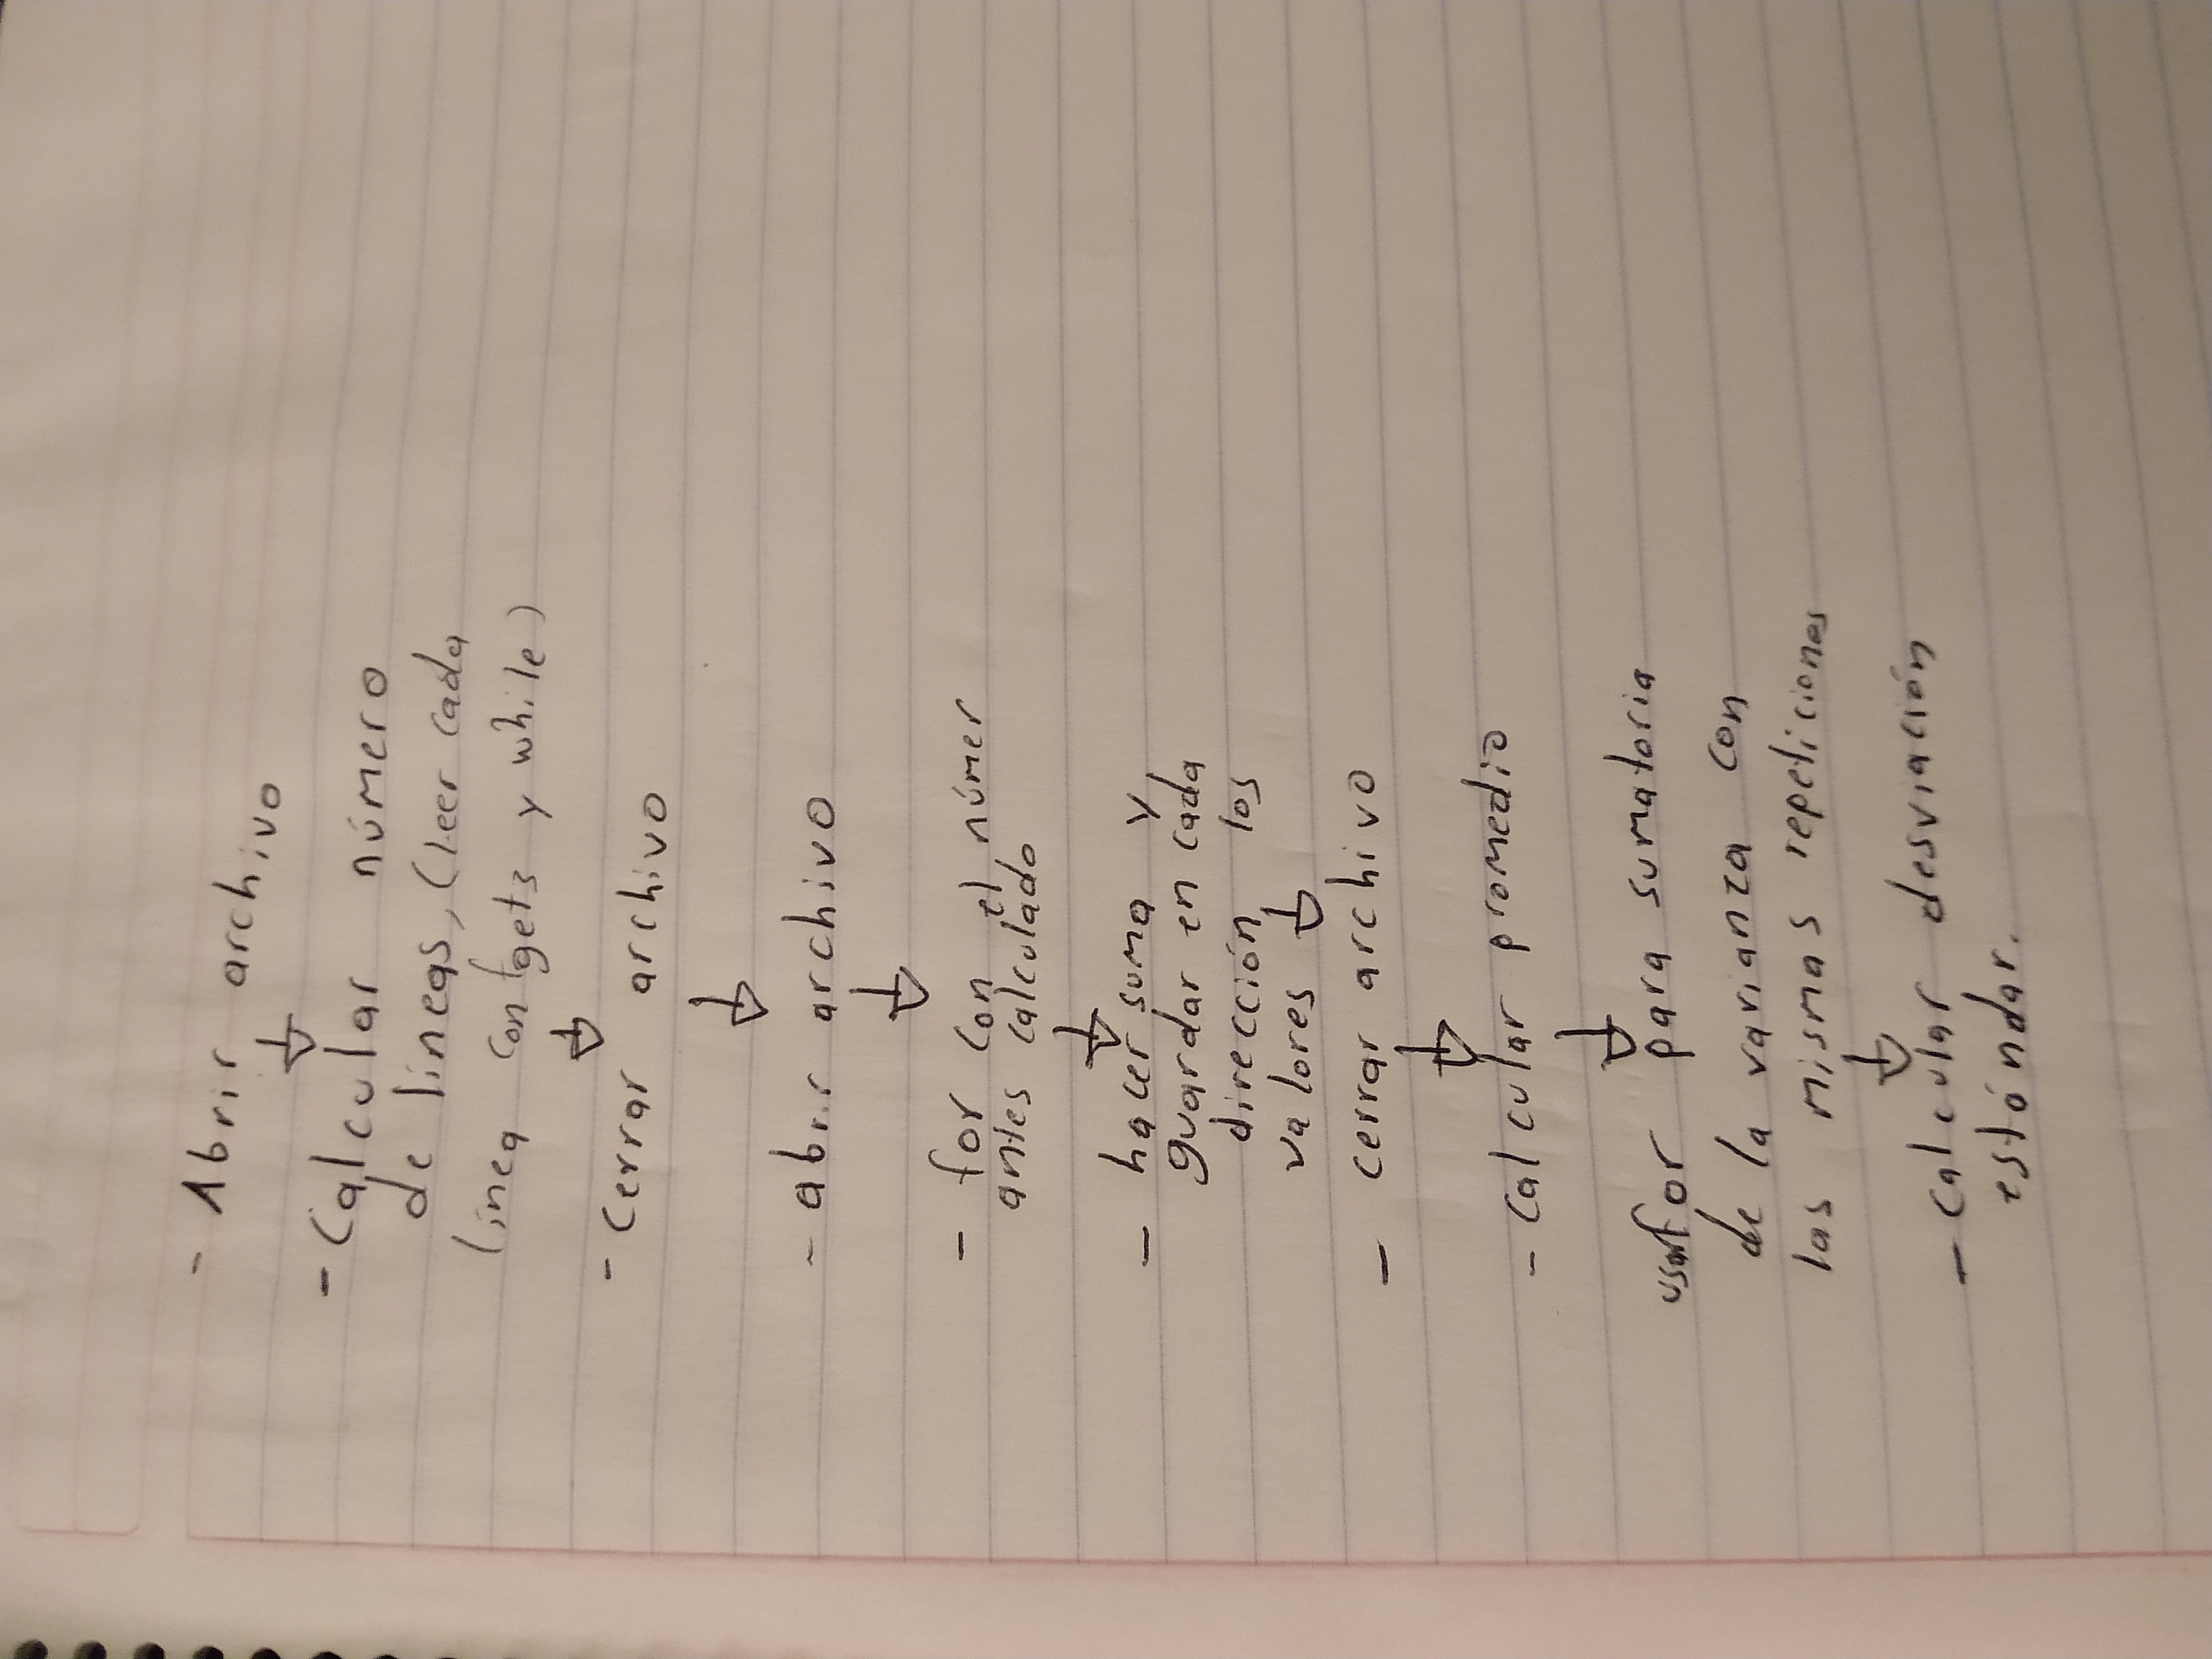 - Abrir archivo
- Calcular número
de líneas, (leer cada
línea con fgets y while)
- Cerrar archivo
- abrir archivo
- for con el númer
antes calculado
- hacer suma y
guardar en cada
dirección los
valores
- cerrar archivo
- Calcular promedio
usar for para sumatoria
de la varianza con
las mismas repeticiones
- Calcular desviación
estándar.